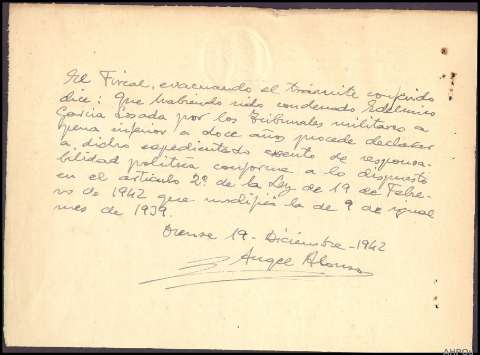 El Fiscal, evacuando el trámite conferido
dice: Que habiendo sido condenado Edelmiro
García Losada por los Tribunales militares a
pena inferior a doce años procede declarar
a dicho expedientado exento de responsa-
bilidad política conforme a lo dispuesto
en el artículo 2º de la Ley de 19 de Febre-
ro de 1942 que modificó la de 9 de igual
mes de 1939.
Orense 19 - Diciembre - 1942
Angel Alonso
AHPOu